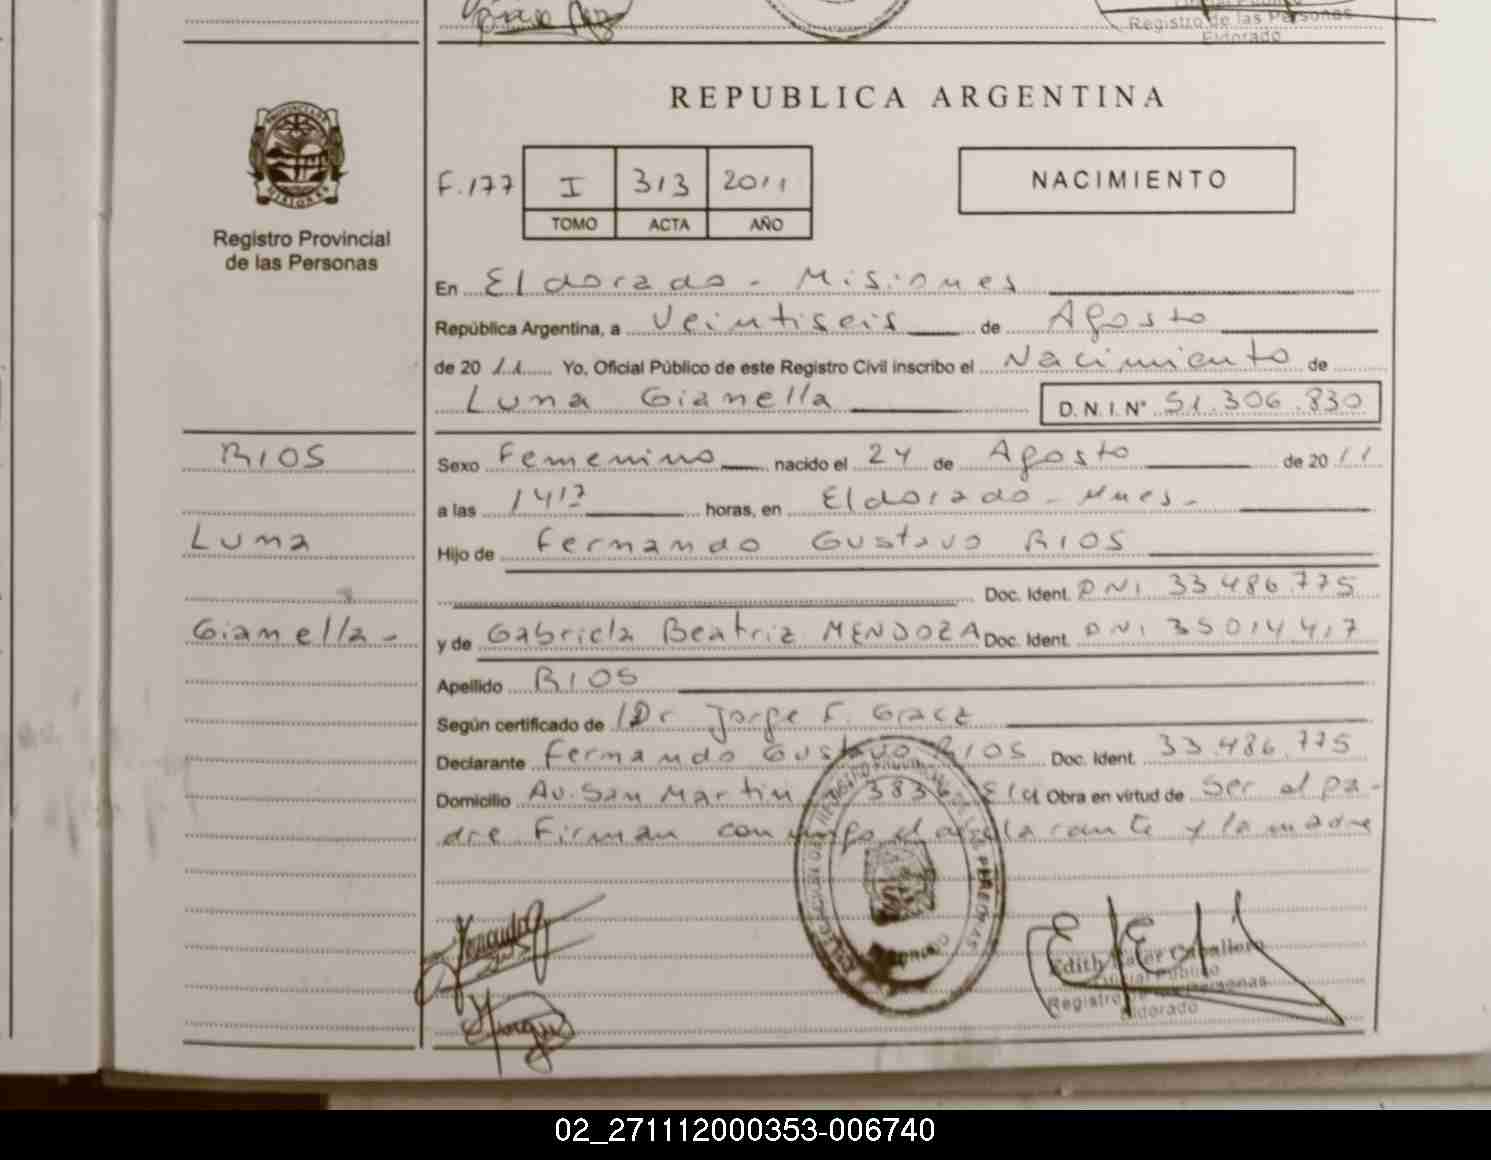 Registro de las Personas
Eldorado
REPUBLICA ARGENTINA
F. 177 I 313 2011
TOMO ACTA AÑO
NACIMIENTO
Registro Provincial
de las Personas
En Eldorado - Misiones
República Argentina, a Veintiseis de Agosto
de 20 11 Yo, Oficial Público de este Registro Civil inscribo el Nacimiento de
Luna Gianella D.N.I.Nº 51.306.830
RIOS
Luna
Gianella -
Sexo Femenino nacido el 24 de Agosto de 20 11
a las 14 17 horas, en Eldorado - Mnes -
Hijo de Fernando Gustavo RIOS
Doc. Ident. DNI 33.486.775
y de Gabriela Beatriz MENDOZA Doc. Ident. DNI 35014417
Apellido RIOS
Según certificado de Dr Jorge F.
Declarante Fernando Gustavo RIOS Doc. Ident. 33.486.775
Domicilio Av. San Martin 3836 Obra en virtud de Ser el pa-
dre Firman conmigo el declarante y la madre
Edith Caballero
Oficial Público
Registro de las Personas
Eldorado
02_271112000353-006740